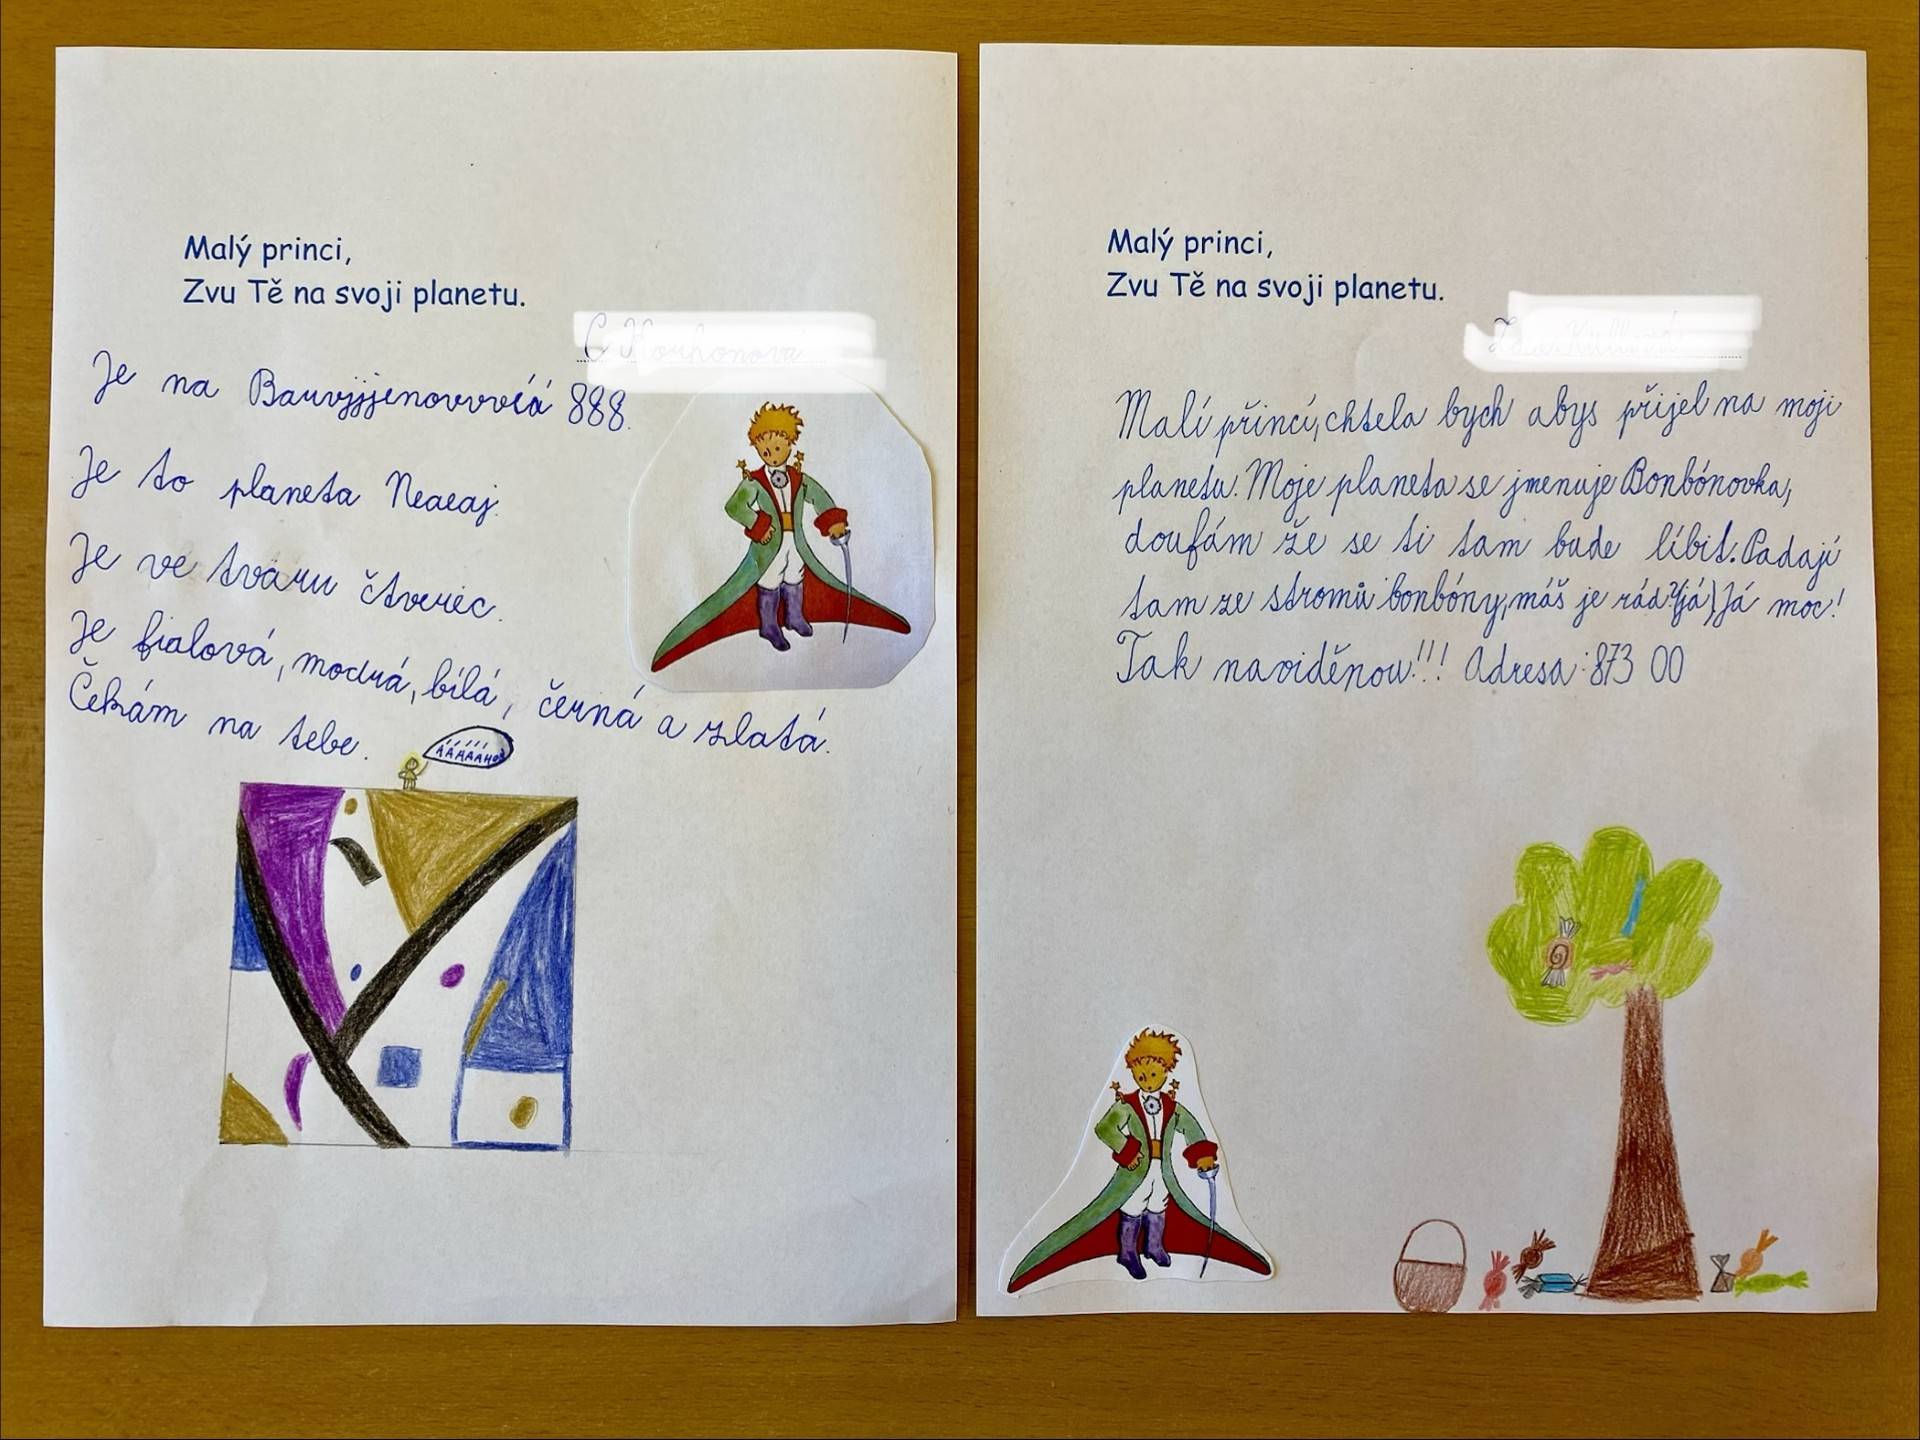 Malý princi,
Zvu Tě na svoji planetu.
Je na Bauvjjjenovvvíá 888.
Je to planeta Neaeaj.
Je ve tvaru čtverec.
Je fialová, modrá, bílá, černá a zlatá.
Čekám na tebe.
Malý princi,
Zvu Tě na svoji planetu.
Malí přincí, chtela bych abys přijel na moji
planetu. Moje planeta se jmenuje Bonbónovka,
doufám že se ti tam bude líbit. Padají
tam ze stromů bonbóny, máš je rád? (já) Já moc!
Tak naviděnou!!! Adresa: 873 00